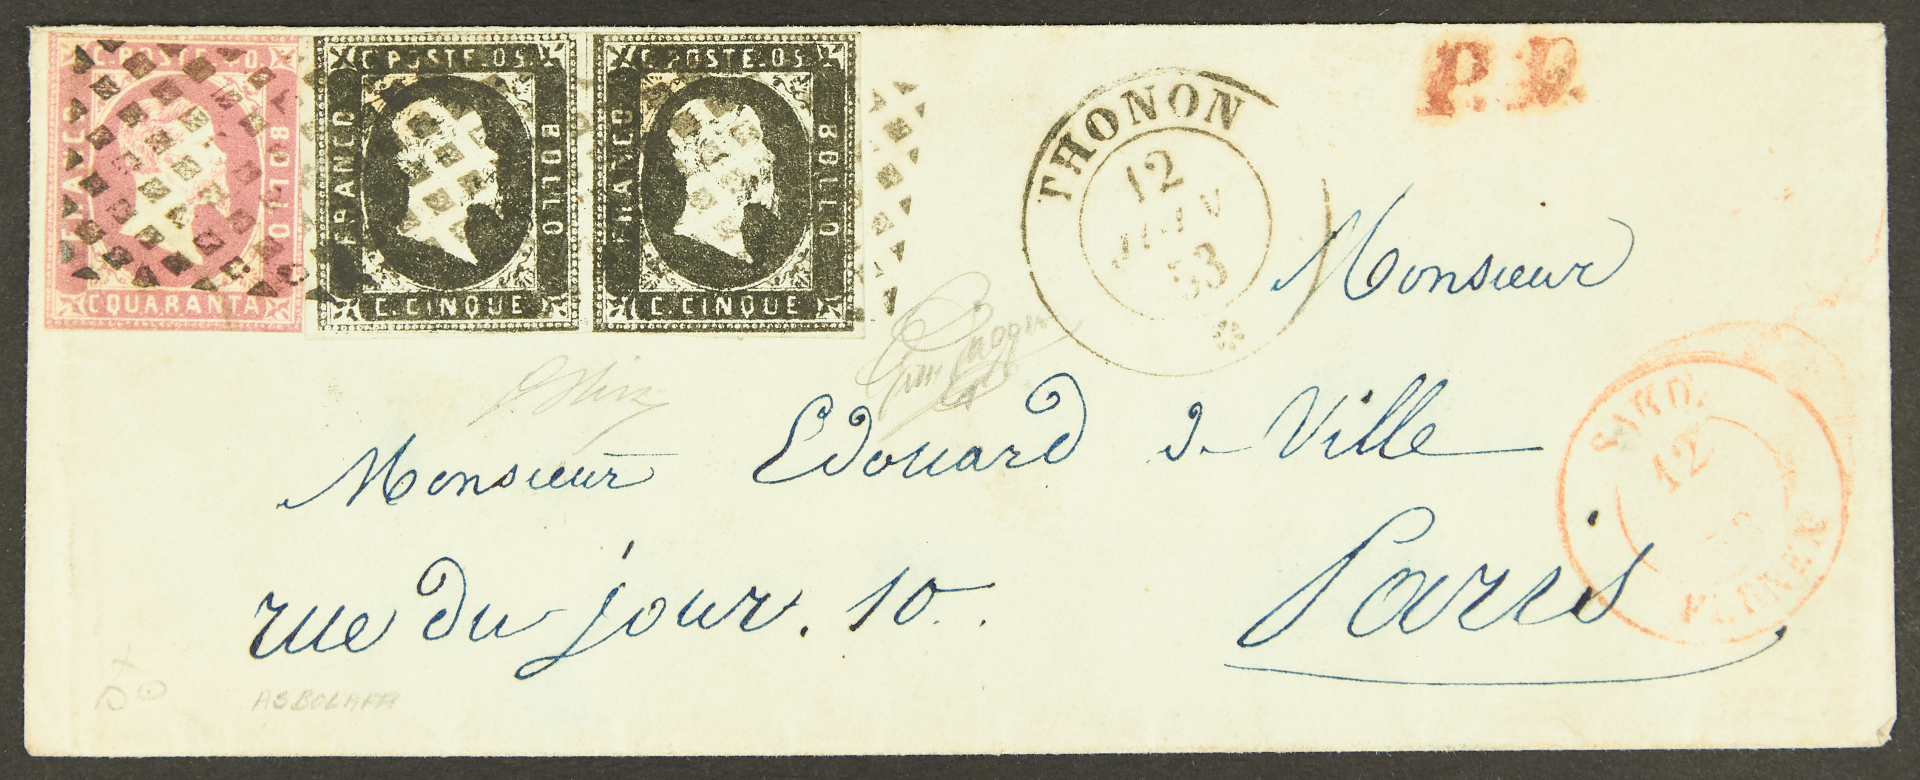 C. POSTE. O
FRANCO
BOLLO
C QUARANTA
C. POSTE. O S.
FRANCO
BOLLO
C. CINQUE
C. POSTE. O S.
FRANCO
BOLLO
C. CINQUE
THONON
12
JANV
53
P.D.
Monsieur
Monsieur Edouard de Ville
rue du jour. 10.
Paris
SARD.
12
FERNEX
AS BOLAFFI